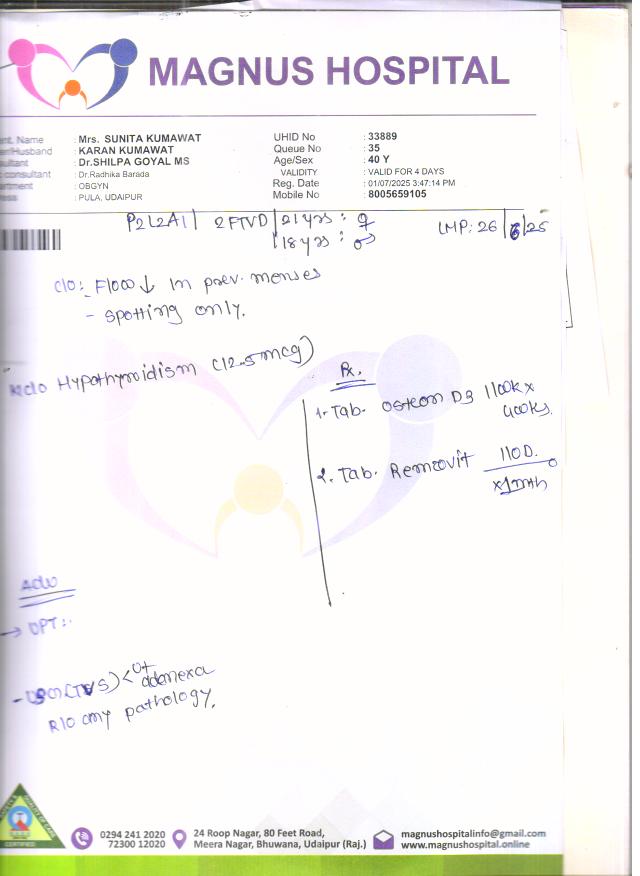 MAGNUS HOSPITAL
ent. Name : Mrs. SUNITA KUMAWAT
er/Husband : KARAN KUMAWAT
sultant : Dr.SHILPA GOYAL MS
consultant : Dr.Radhika Barada
artment : OBGYN
ress : PULA, UDAIPUR
UHID No : 33889
Queue No : 35
Age/Sex : 40 Y
VALIDITY : VALID FOR 4 DAYS
Reg. Date : 01/07/2025 3:47:14 PM
Mobile No : 8005659105
P2L2A1 | 2FTVD | 21 yrs : ♀
18 yrs : ♂
LMP: 26/6/25
c/o:- Flow ↓ in prev. menses
- Spotting only.
K/c/o Hypothyroidism (12.5mcg)
Rx.
1. Tab. Osteon D3 1/week x
4weeks.
2. Tab. Remcovit 1 OD.
x1mth
Adv
→ UPT:-
- USG (TVS) < Ut
adenexa
R/o any pathology.
0294 241 2020
72300 12020
24 Roop Nagar, 80 Feet Road,
Meera Nagar, Bhuwana, Udaipur (Raj.)
magnushospitalinfo@gmail.com
www.magnushospital.online
CERTIFIED